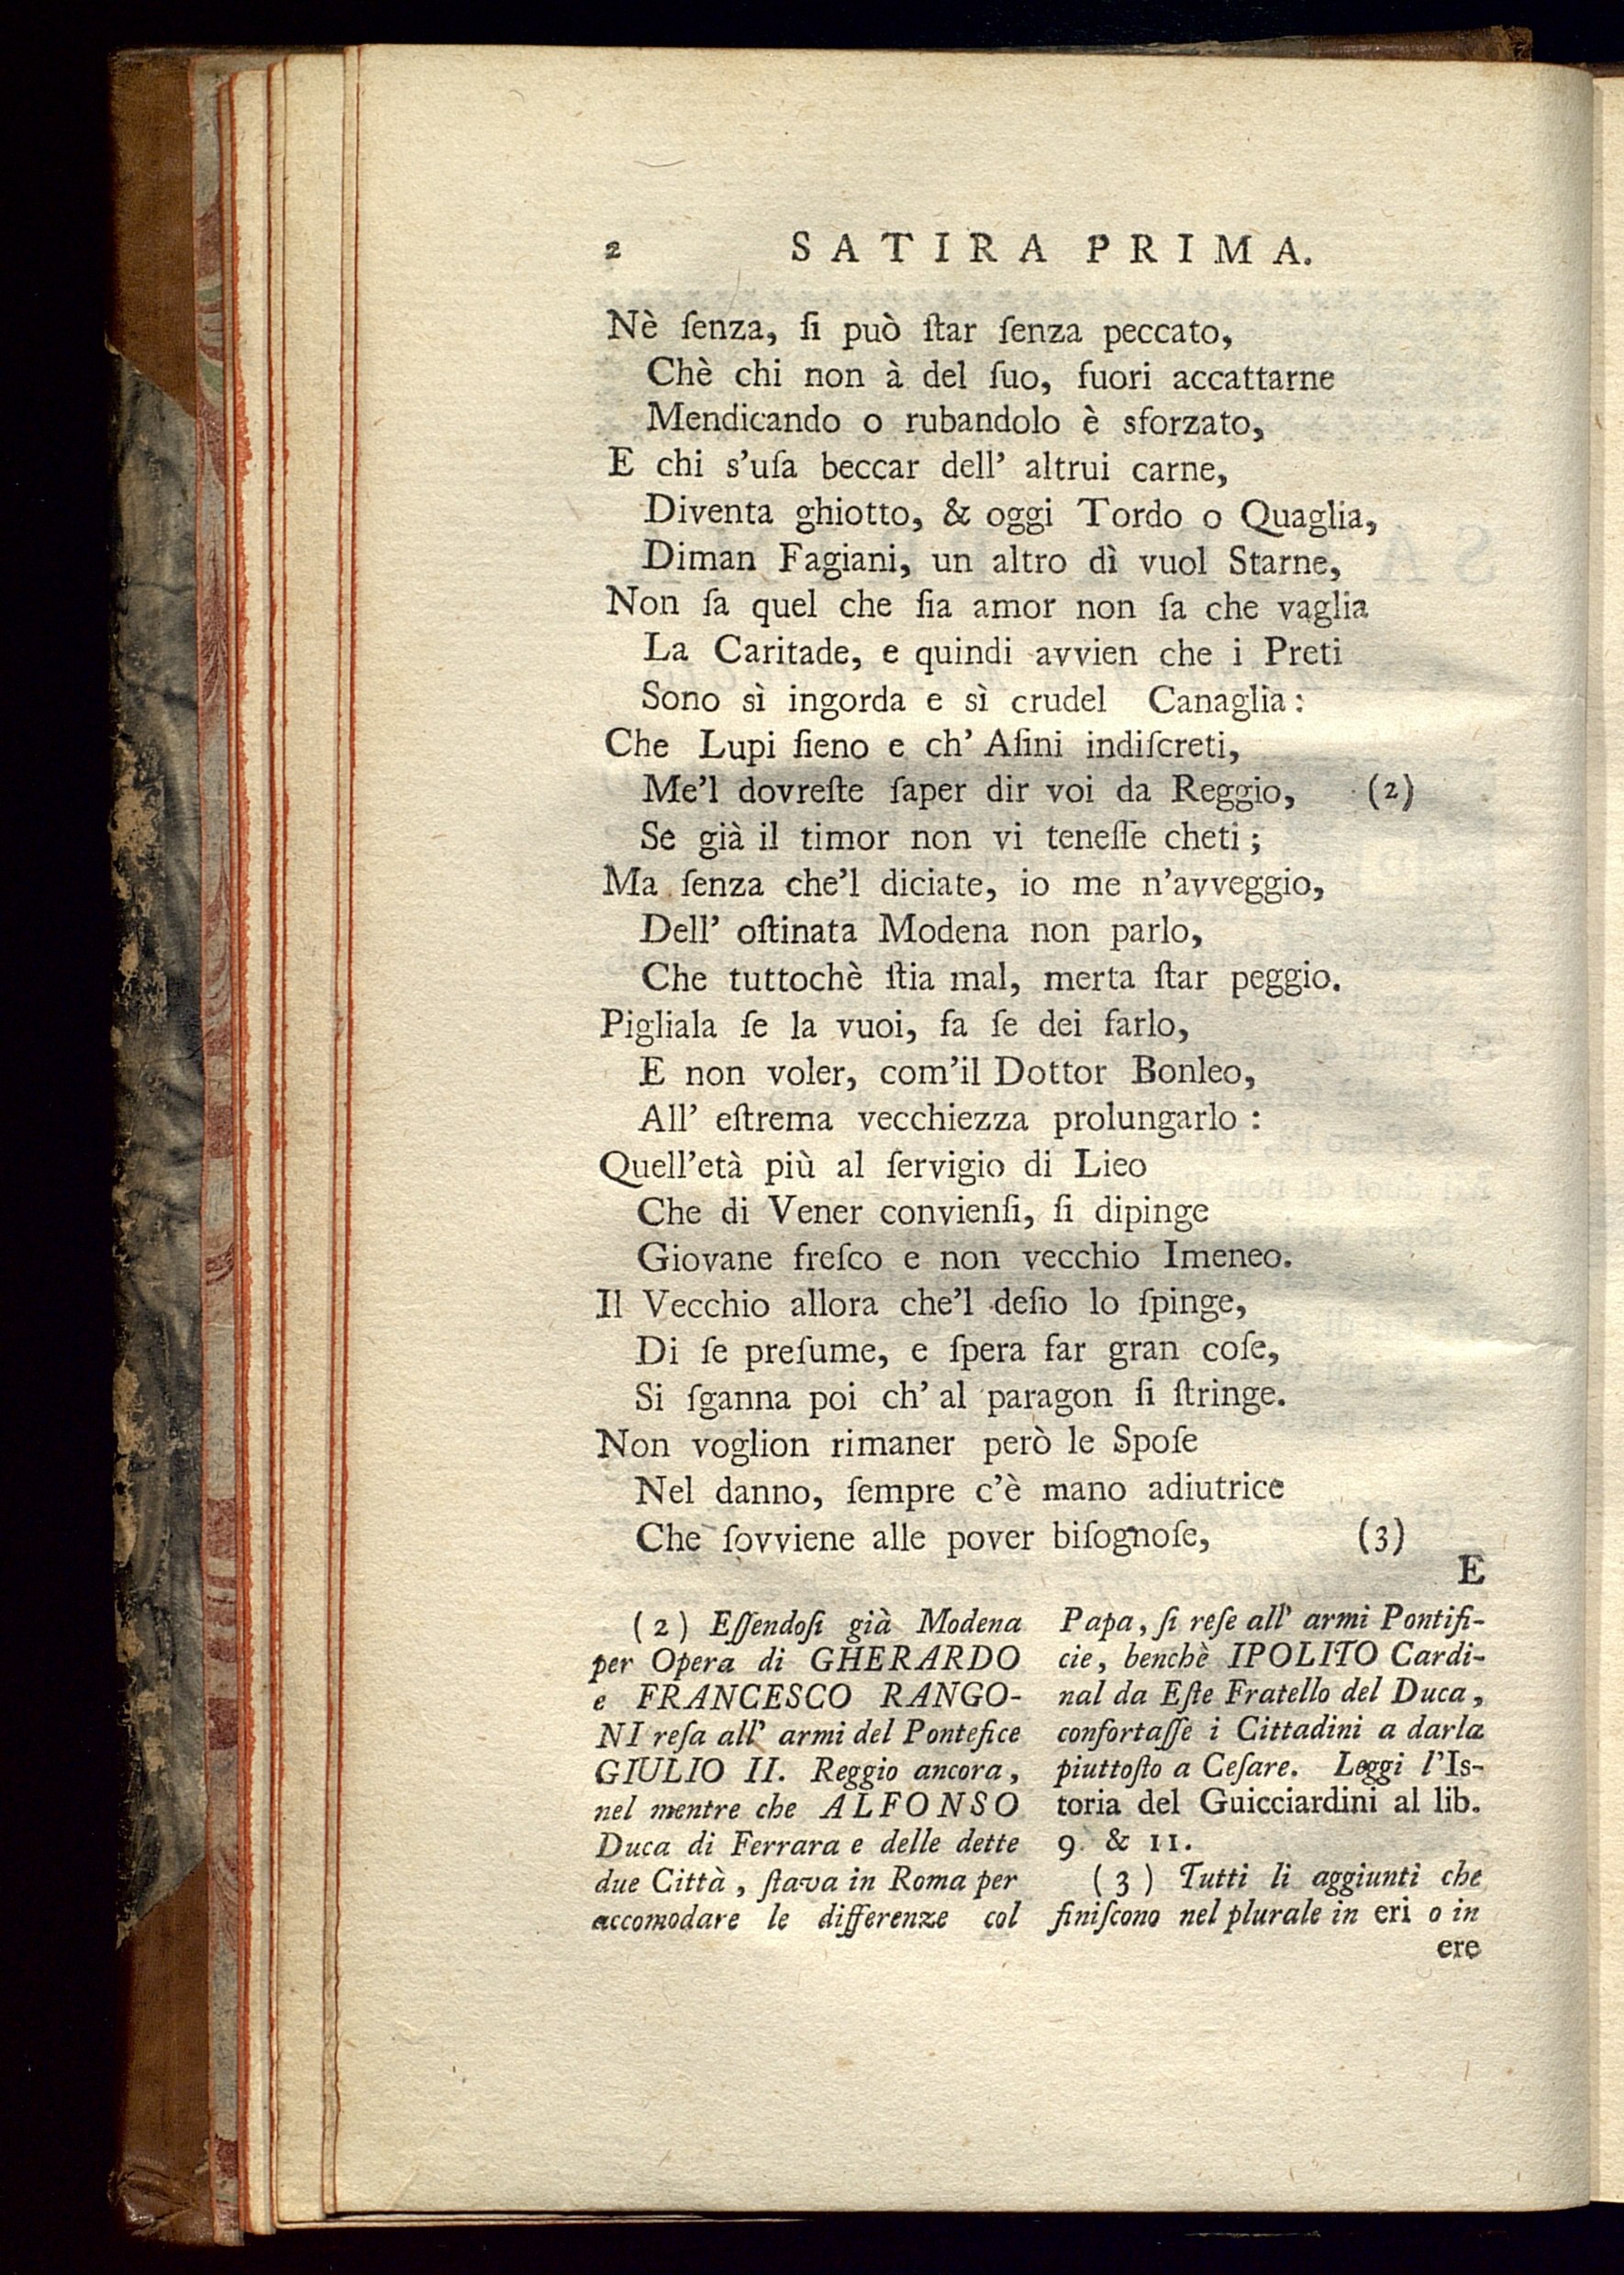 2 SATIRA PRIMA.
Nè ſenza, ſi può ſtar ſenza peccato,
Chè chi non à del ſuo, fuori accattarne
Mendicando o rubandolo è sforzato,
E chi s'uſa beccar dell' altrui carne,
Diventa ghiotto, & oggi Tordo o Quaglia,
Diman Fagiani, un altro dì vuol Starne,
Non ſa quel che ſia amor non ſa che vaglia
La Caritade, e quindi avvien che i Preti
Sono sì ingorda e sì crudel Canaglia:
Che Lupi ſieno e ch' Aſini indiſcreti,
Me'l dovreſte ſaper dir voi da Reggio, (2)
Se già il timor non vi teneſſe cheti;
Ma ſenza che'l diciate, io me n'avveggio,
Dell' oſtinata Modena non parlo,
Che tuttochè ſtia mal, merta ſtar peggio.
Pigliala ſe la vuoi, fa ſe dei farlo,
E non voler, com'il Dottor Bonleo,
All' eſtrema vecchiezza prolungarlo:
Quell'età più al ſervigio di Lieo
Che di Vener convienſi, ſi dipinge
Giovane freſco e non vecchio Imeneo.
Il Vecchio allora che'l deſio lo ſpinge,
Di ſe preſume, e ſpera far gran coſe,
Si ſganna poi ch' al paragon ſi ſtringe.
Non voglion rimaner però le Spoſe
Nel danno, ſempre c'è mano adiutrice
Che ſovviene alle pover biſognoſe, (3)
E
(2) Eſſendoſi già Modena
per Opera di GHERARDO
e FRANCESCO RANGO-
NI reſa all' armi del Pontefice
GIULIO II. Reggio ancora,
nel mentre che ALFONSO
Duca di Ferrara e delle dette
due Città, ſtava in Roma per
accomodare le differenze col
Papa, ſi reſe all' armi Pontifi-
cie, benchè IPOLITO Cardi-
nal da Eſte Fratello del Duca,
confortaſſe i Cittadini a darla
piuttoſto a Ceſare. Leggi l'Is-
toria del Guicciardini al lib.
9. & 11.
(3) Tutti li aggiunti che
finiſcono nel plurale in eri o in
ere